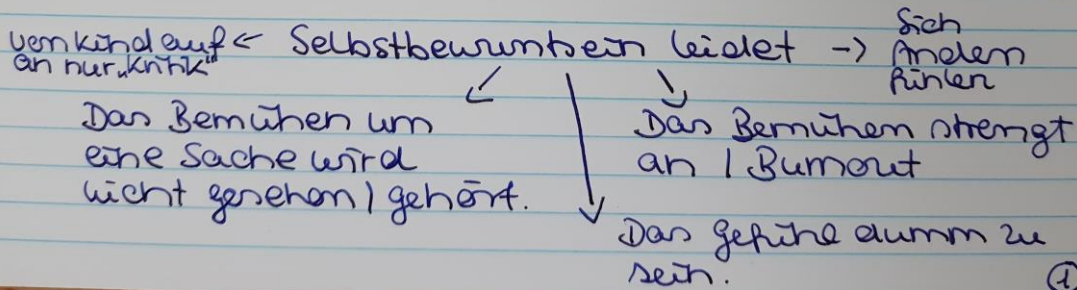 von kind auf ← Selbstbewusstsein leidet → Sich
an nur „Kritik" Anders
fühlen
Das Bemühen um
eine Sache wird
nicht gesehen / gehört.
Das Bemühen strengt
an / Burnout
Das gefühl dumm zu
sein.
①